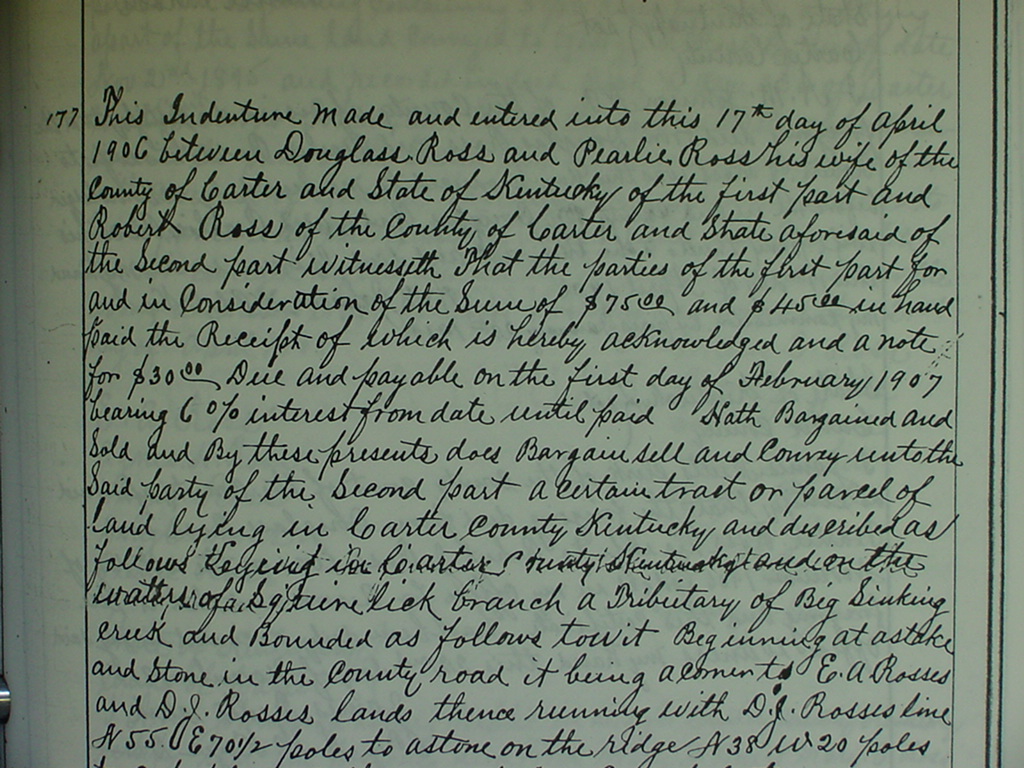 177 This Indenture Made and entered into this 17th day of April
1906 between Douglass Ross and Pearlie Ross his wife of the
County of Carter and State of Kentucky of the first part and
Robert Ross of the County of Carter and State aforesaid of
the Second part witnesseth That the parties of the first part for
and in Consideration of the Sum of $75 00 and $45 00 in hand
paid the Receipt of which is hereby acknowledged and a note
for $30 00 Due and payable on the first day of February 1907
bearing 6 % interest from date until paid Hath Bargained and
Sold and By these presents does Bargain sell and Convey unto the
Said party of the Second part a certain tract or parcel of
land lying in Carter County Kentucky and described as
follows in Carter County Kentucky and on the
waters of Squire lick branch a Tributary of Big Sinking
creek and Bounded as follows towit Beginning at a stake
and stone in the County road it being a corner to E. A Rosses
and D. J. Rosses lands thence running with D. J. Rosses line
N 55 E 70 1/2 poles to a stone on the ridge N 38 W 20 poles